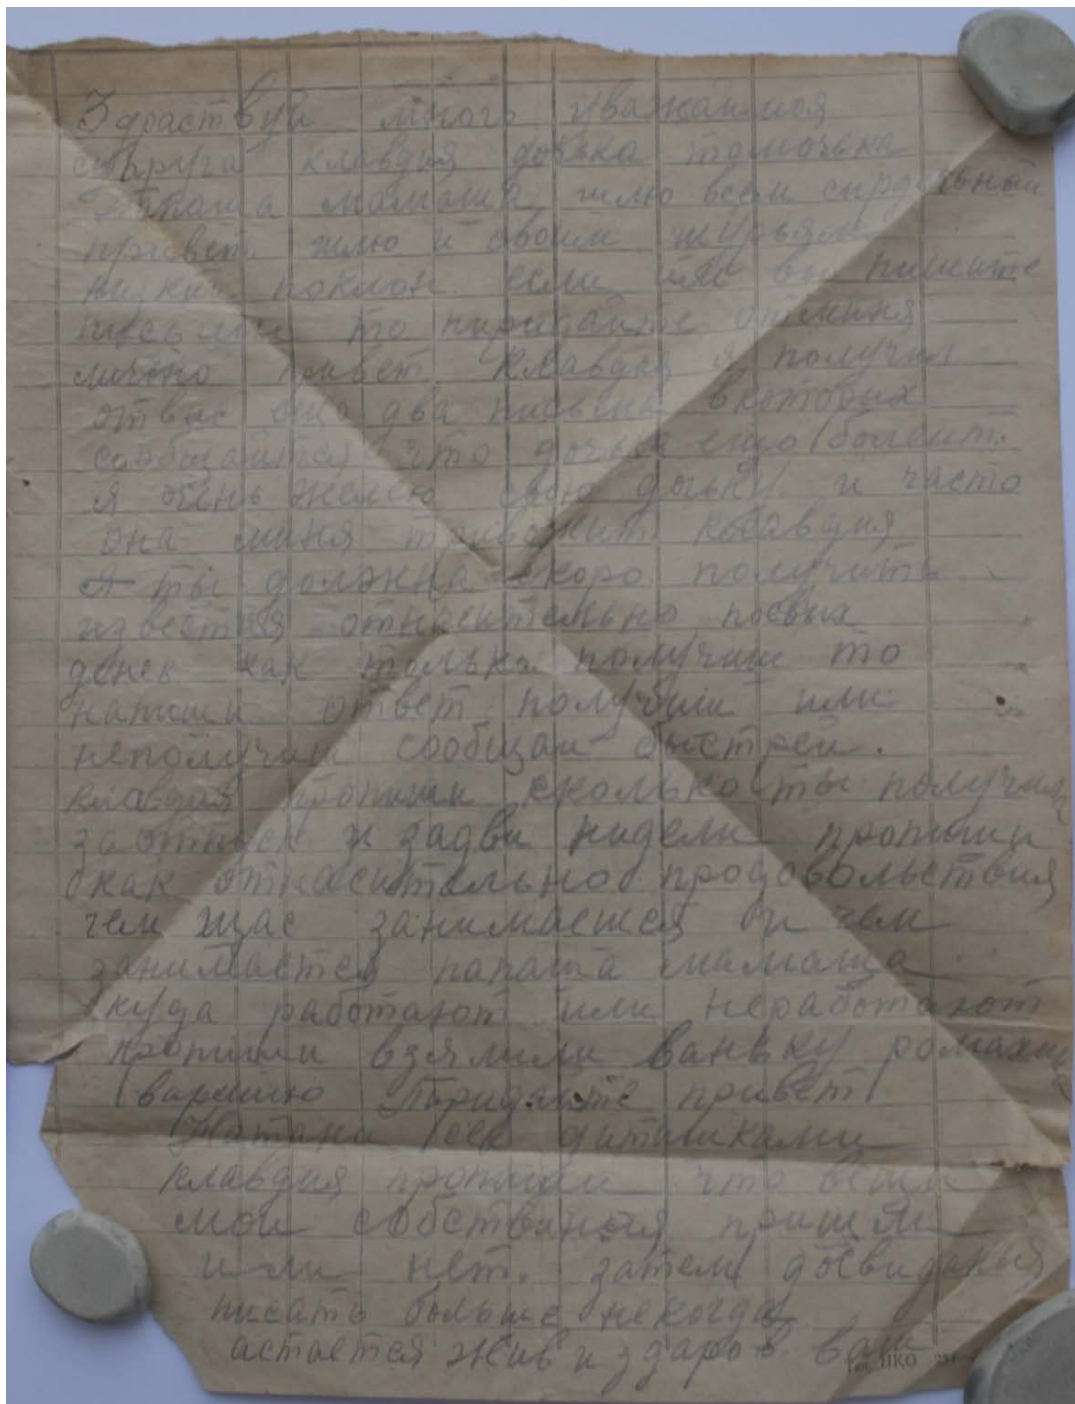 Здраствуй много уважаимая
супруга клавдия дочька томочька
Папаша мамаша шлю всем сирдечьный
привет шлю и своим шурьям
низкий поклон если им вы пишите
письма то пиридайте отминя
лично привет Клавдия я получил
отвас ищо два письма вкоторых
сообщаится что дочька ещо болеит.
я очень желею свою дочьку и часто
она миня тривожит клавдия
ты должна скоро получить
известия отнаситильно
денек как только получиш то
напиши ответ получили или
неполучили сообщай быстрей.
клавдия пропиши сколько ты получила
заотпуск и задви нидели пропиши
как отнаситильно продовольствия
чем щас занимаешся и чем
занимаетса папаша мамаша
куда работают или неработают
пропиши взялили ваньку
Пиридайте привет
дитишками
клавдия пропиши что вещи
мои собствиныя пришли
или нет. затем досвидания
писать больше некогда
астаетса жив и здаров ваш
НКО